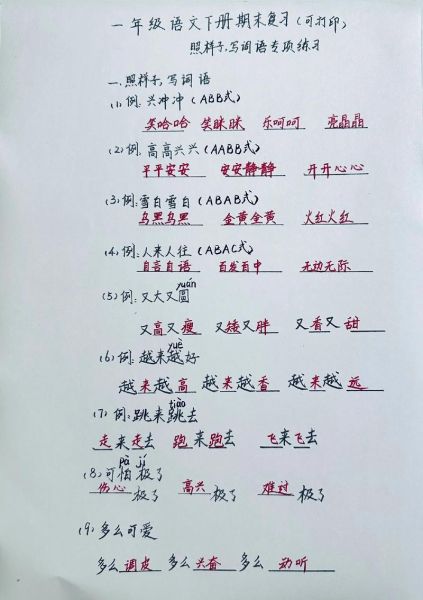 一年级语文下册期末复习(可打印)
照样子,写词语专项练习
一、照样子,写词语
(1)例:兴冲冲(ABB式)
笑哈哈 笑眯眯 乐呵呵 亮晶晶
(2)例:高高兴兴(AABB式)
平平安安 安安静静 开开心心
(3)例:雪白雪白(ABAB式)
乌黑乌黑 金黄金黄 火红火红
(4)例:人来人往(ABAC式)
自言自语 百发百中 无边无际
yuán
(5)例:又大又圆
又高又瘦 又矮又胖 又香又甜
yuè
(6)例:越来越好
越来越高 越来越香 越来越远
tiào
(7)例:跳来跳去
走来走去 跑来跑去 飞来飞去
pà jí
(8)可怕极了
伤心极了 高兴极了 难过极了
(9)多么可爱
多么调皮 多么兴奋 多么动听